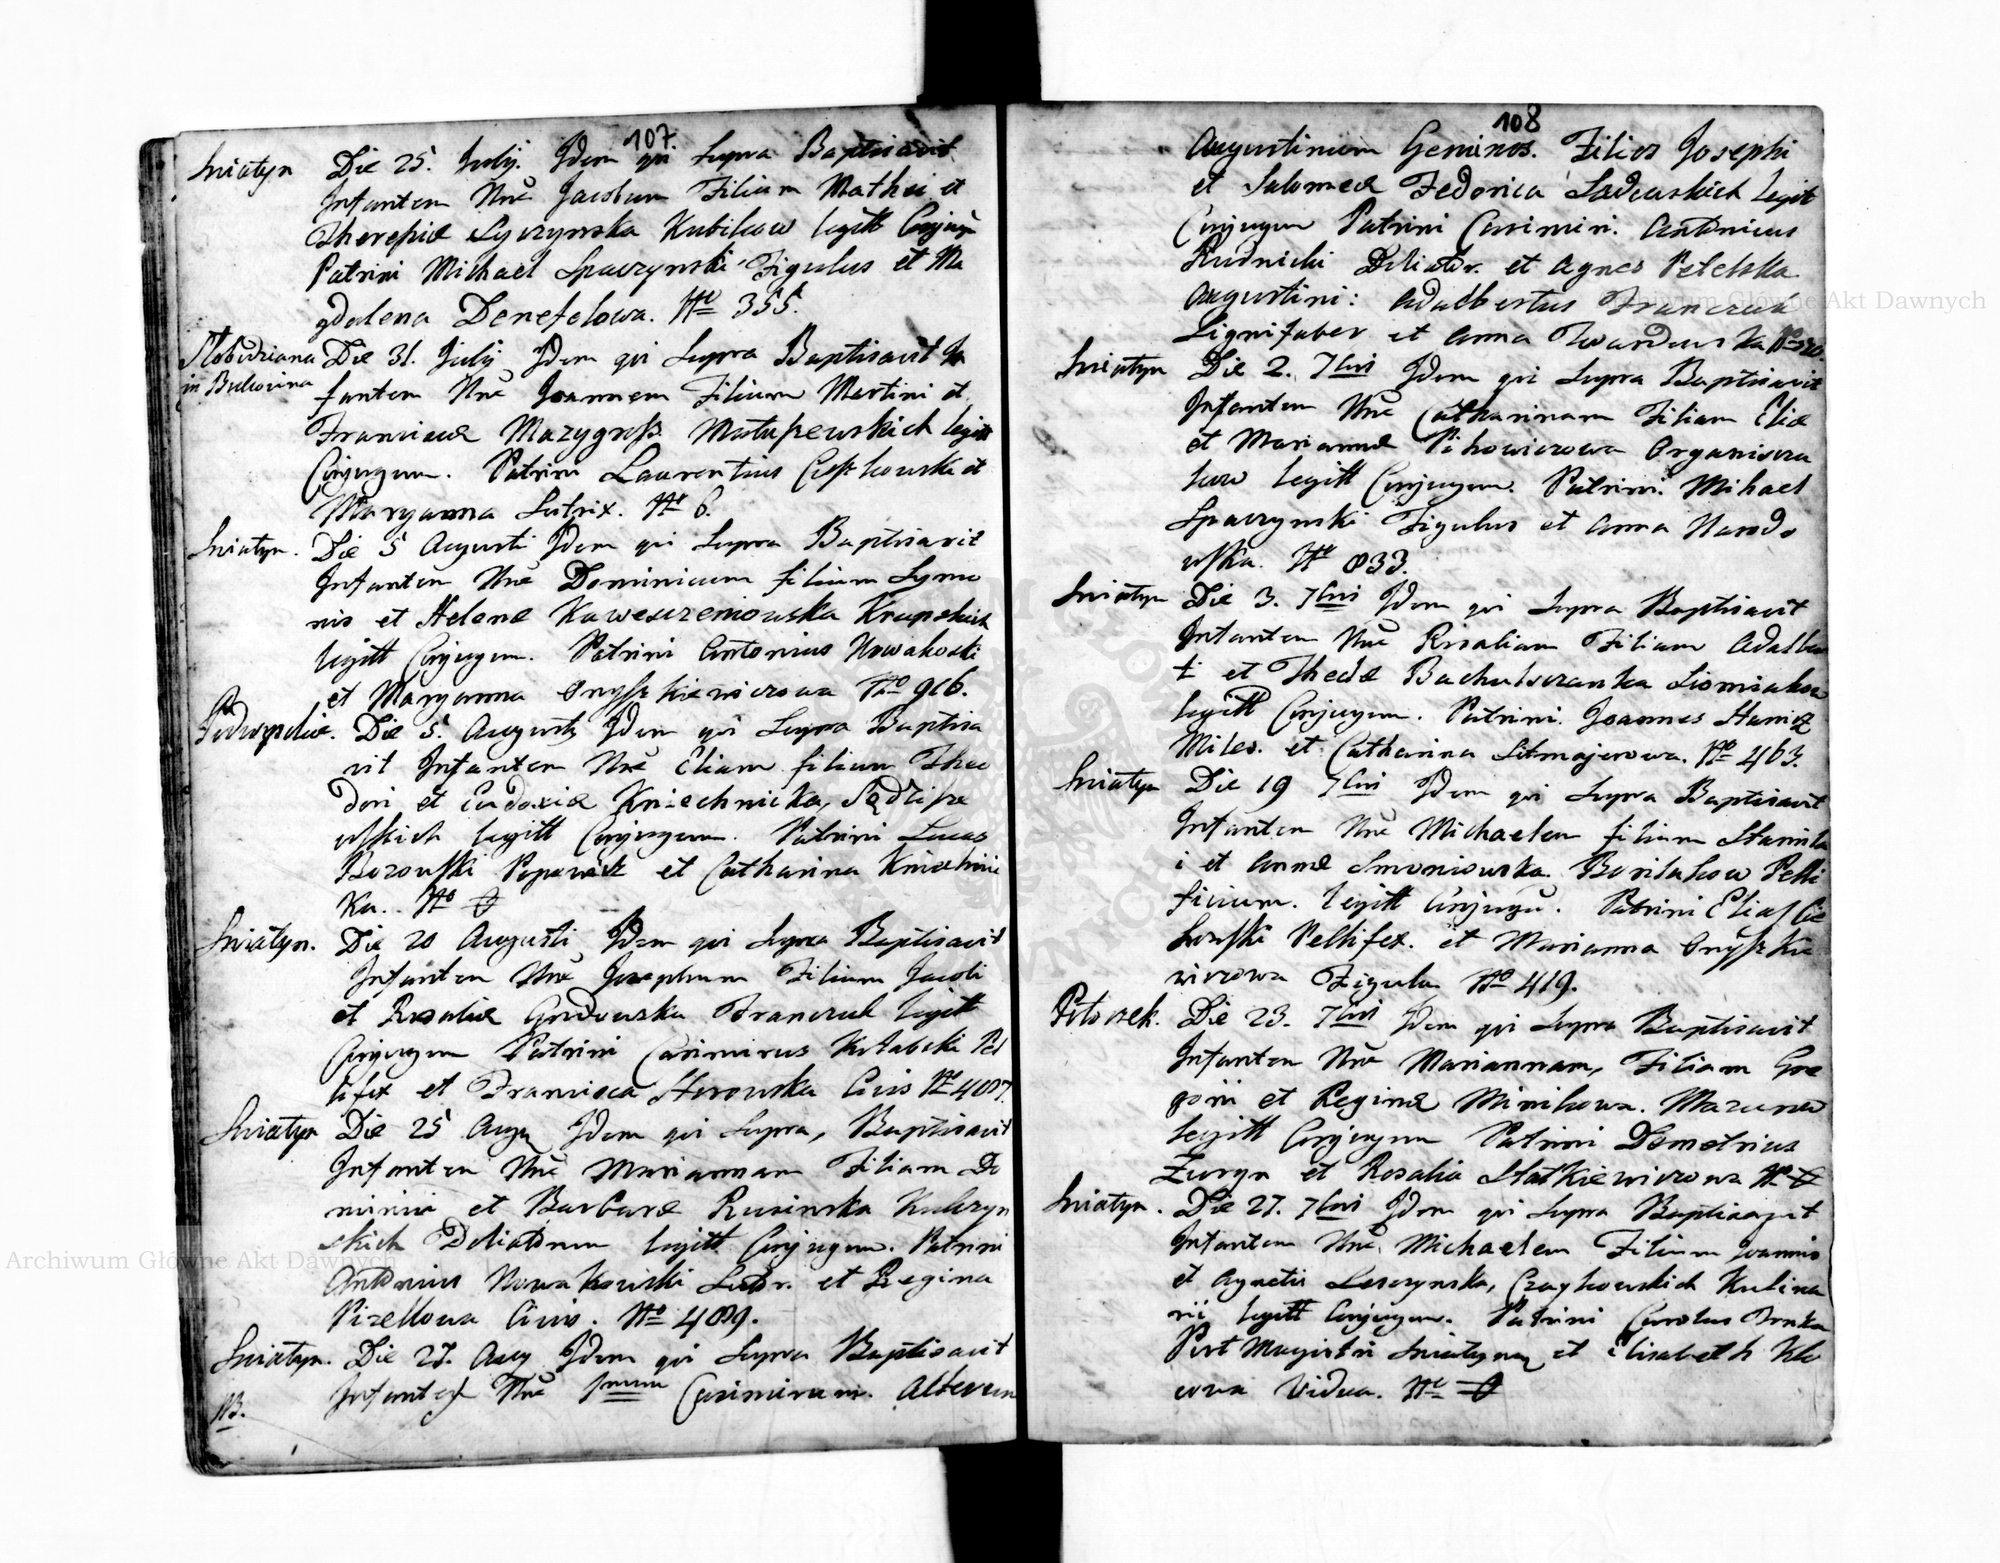 107.
Sniatyn Die 25. Julij. Idem qui Supra Baptisavit
Infantem Nne Jacobum Filium Mathei et
Theresiæ Kubikow legitt Conjug
Patrini Michael Spaczynski Figulus et Ma
gdalena Denefelowa. No 355.
Slobodziana Die 31. Julij Idem qui Supra Baptisavit In
in Bukovina fantem Nne Joannem Filium Martini et
Franciscæ Mazygroß legitt
Conjugum. Patrini Laurentius et
Maryanna Sutrix. No 6.
Sniatyn. Die 5 Augusti Idem qui Supra Baptisavit
Infantem Nne Dominicum filium Symo
nis et Helenæ Krupskich
legitt Conjugum. Patrini Antonius Nowakoski
et Maryanna Onyszkiewiczowa No
Die 5. Augusti Idem qui Supra Baptisa
vit Infantem Nne Eliam filium Theo
dori et Eudoxiæ Kniechnicka,
wskich legitt Conjugum. Patrini Lucas
et Catharina Kniechnic
ka. No 0
Sniatyn. Die 20 Augusti Idem qui Supra Baptisavit
Infantem Nne Josephum Filium Jacobi
et Rosaliæ Franczuk legitt
Conjugum Patrini Casimirus Kulabski Pel
lifex et Francisca Civis No
Sniatyn Die 25 Aug Idem qui Supra, Baptisavit
Infantem Nne Mariannam Filiam Do
minici et Barbaræ Rusinska Kulczyn
skich Doliatorum legitt Conjugum. Patrini
Antonius Nowakowski Sutor. et Regina
Pizellowa Civis. No
Sniatyn. Die 27. Aug Idem qui Supra Baptisavit
NB. Nne 1mum Casimirum. Alterum
108
Augustinum Geminos. Filios Josephi
et Salomeæ Fedorica Sadowskich legit
Conjugum Patrini Casimiri. Antonius
Rudnicki Doliator. et Agnes Petelska
Augustini: Adalbertus Franczuk
Lignifaber et Anna
Sniatyn Die 2. 7bris Idem qui Supra Baptisavit
Infantem Nne Catharinam Filiam Eliæ
et Mariannæ Organiscza
kow legitt Conjugum. Patrini. Mihael
Spaczynski Figulus et Anna
wska. No 833.
Sniatyn Die 3. 7bris Idem qui Supra Baptisavit
Infantem Nne Rosaliam Filiam Adalber
ti et Theclæ
legitt Conjugum. Patrini. Joannes
Miles. et Catharina Sitmajerowa. No 463.
Sniatyn Die 19 7bris Idem qui Supra Baptisavit
Infantem Nne Michaelem filium Stanisla
i et Annæ Pelli
ficium. legitt Conjugu. Patrini Elias
Pellifex. et Marianna Onyszkie
wiczowa Figula No 419.
Potoczek. Die 23. 7bris Idem qui Supra Baptisavit
Infantem Nne Mariannam, Filiam Gre
gorii et Reginæ Minikowa.
legitt Conjugum Patrini Demetrius
Zuryn et Rosalia Statkiewiczowa No 0
Sniatyn. Die 27. 7bris Idem qui Supra Baptisavit
Infantem Nne. Michaelem Filium Joannis
et Agnetis Leszczynska, Czaykowskich Kulina
rii legitt Conjugum. Patrini Carolus
Post Magistri et Elisabeth
Vidua. No 0
Archiwum Główne Akt Dawnych
Archiwum Główne Akt Dawnych